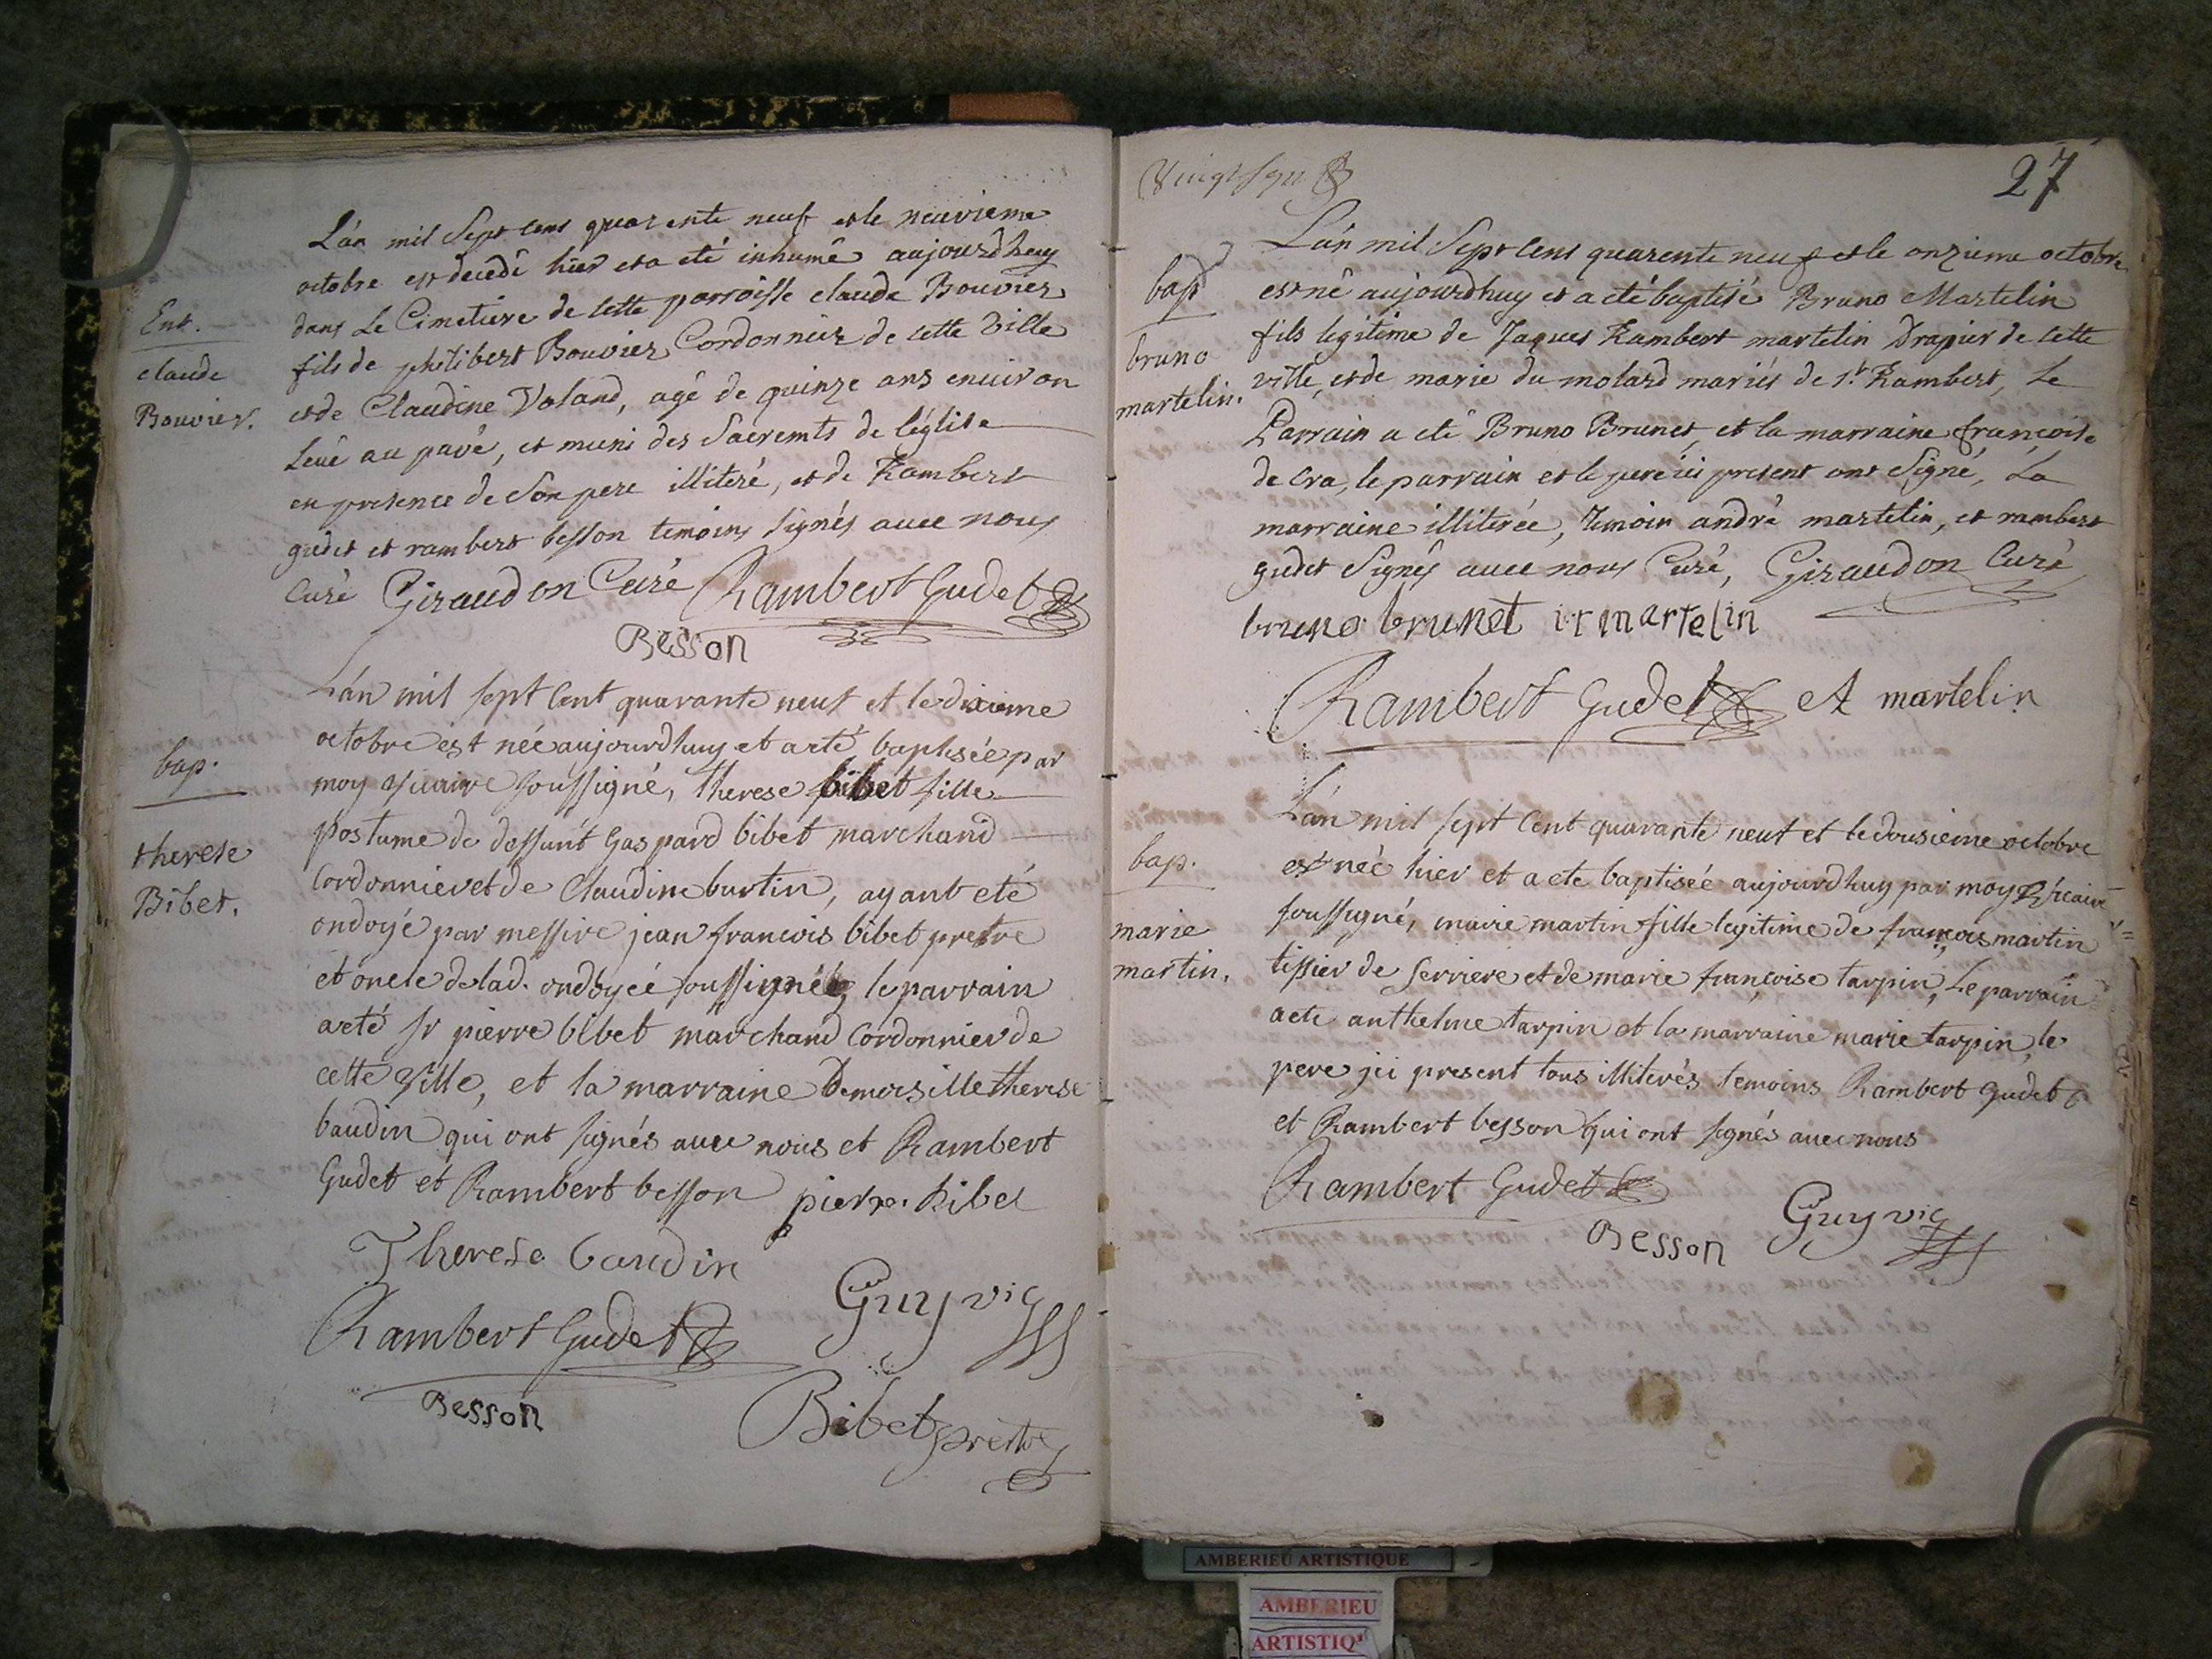 L'án mil Sept cens quarente neuf et le neuvieme
octobre est decedé hier et a eté inhumé aujourdhuy
dans Le Cimetiere de cette parroisse claude Bouvier
fils de philibert Bouvier Cordonnier de cette ville
et de Claudine Voland, agé de quinze ans environ
Leué au pavé, et muni des Sacremts de l'église
en presence de Son pere illiteré, et de Rambert
gudet et rambert besson temoins signés avec nous
Curé Giraudon Curé Rambert Gudet
Besson
Ent.
claude
Bouvier.
L'án mil sept Cent quarante neuf et le dixieme
octobre est née aujourdhuy et a eté baptisée par
moy vicaire soussigné, therese bibet fille
postume de deffunt Gaspard bibet marchand
Cordonnier et de Claudine burtin, ayant eté
ondoyé par messire jean francois bibet prestre
et oncle de lad. ondoyée soussigné, le parrain
a eté sr pierre bibet marchand Cordonnier de
cette ville, et la marraine Demoiselle therese
baudin qui ont signés avec nous et Rambert
Gudet et Rambert besson pierre bibet
bap.
therese
Bibet.
Therese baudin
Guy vic
Rambert Gudet
Besson
Bibet prestre
27
L'án mil Sept Cens quarente neuf et le onzieme octobre
est né aujourdhuy et a eté baptisé Bruno Martelin
fils legitime de Jaques Rambert martelin Drapier de cette
ville, et de marie du molard mariés de St. Rambert, Le
Parrain a eté Bruno Brunet, et la marraine françoise
de Cra, le parrain et le pere ici present ont Signé, La
marraine illiterée, temoin andré martelin, et rambert
gudet Signés avec nous Curé, Giraudon Curé
bruno brunet ir martelin
Rambert Gudet A martelin
bap
bruno
martelin.
L'án mil sept Cent quarante neuf et le dousieme octobre
est née hier et a ete baptisée aujourdhuy par moy Vicaire
soussigné, marie martin fille legitime de francois martin
tissier de serriere et de marie françoise tarpin, Le parrain
a ete anthelme tarpin et la marraine marie tarpin, le
pere jci present tous illiterés temoins Rambert Gudet
et Rambert besson qui ont signés avec nous
bap.
marie
martin.
Rambert Gudet
Besson
Guy vic
AMBERIEU ARTISTIQUE
AMBERIEU
ARTISTIQ